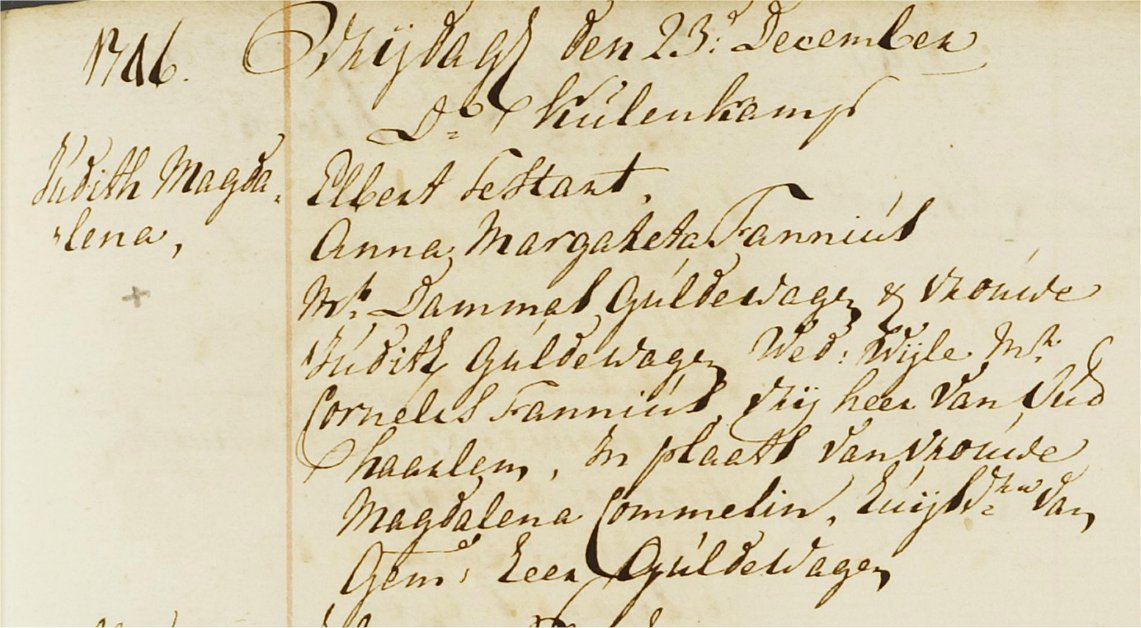 1746. Vrijdagh den 23.d December
Do. Kulenkamp
Judith Magda-
lena,
Elbert Testart,
Anna Margareta Fannius
Mr. Dammas Guldewagen & vrouwe
Judith Guldewagen Wed: Wijle Mr.
Cornelis Fannius, vrij heer van Oud
haarlem, In plaats van vrouwe
Magdalena Commelin, huijsvr. van
Gem: heer Guldewagen